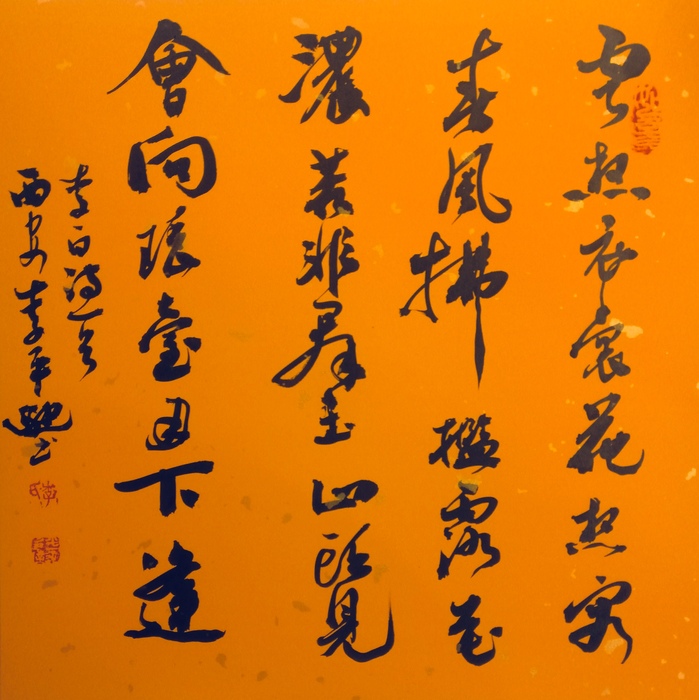 雲想衣裳花想容
春風拂檻露花
濃若非群玉山頭見
會向瑤臺月下逢
李白詩一首
西安李平书